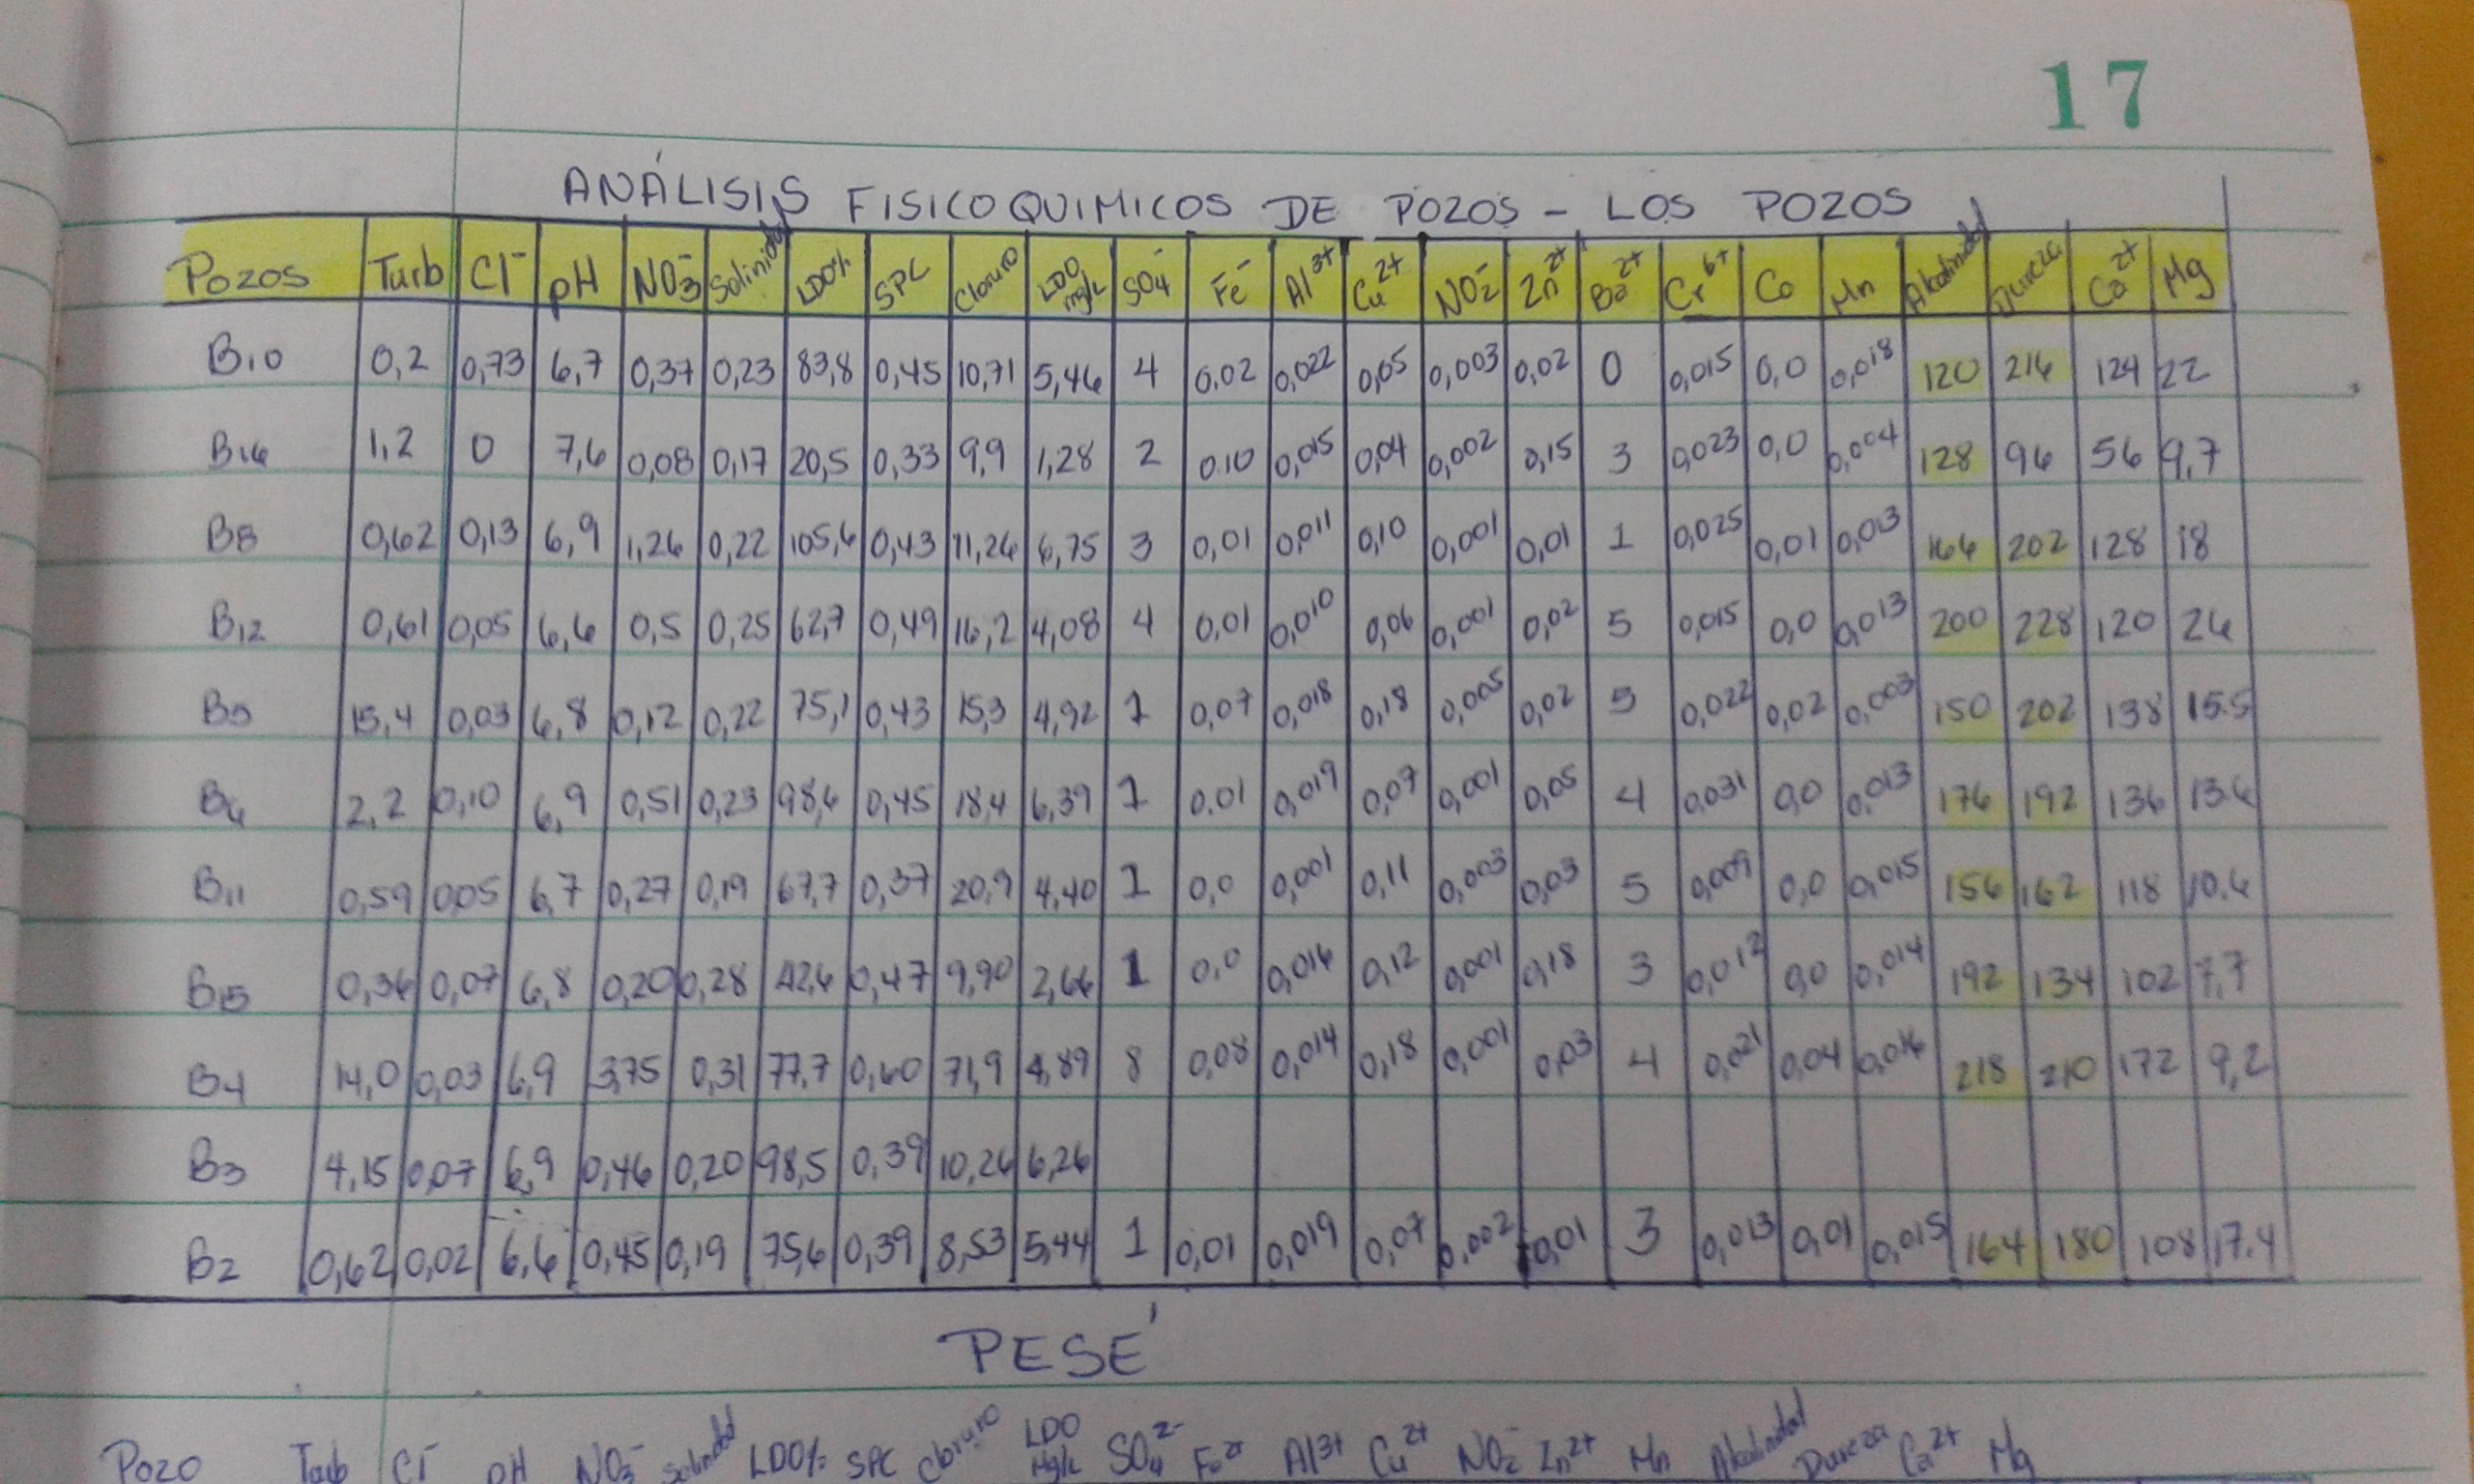 17
ANÁLISIS FISICOQUIMICOS DE POZOS - LOS POZOS
Pozos Turb Cl⁻ pH NO₃⁻ Salinidad LDO% SPC Cloruro LDO mg/L SO₄⁻ Fe⁻ Al³⁺ Cu²⁺ NO₂⁻ Zn²⁺ Ba²⁺ Cr⁶⁺ Co Mn Alkalinidad Dureza Ca²⁺ Mg
B10 0,2 0,73 6,7 0,37 0,23 83,8 0,45 10,71 5,46 4 0,02 0,022 0,05 0,003 0,02 0 0,015 0,0 0,018 120 216 124 22
B16 1,2 0 7,6 0,08 0,17 20,5 0,33 9,9 1,28 2 0.10 0,015 0,04 0,002 0,15 3 0,023 0,0 0,004 128 96 56 9,7
B8 0,62 0,13 6,9 1,26 0,22 105,6 0,43 11,26 6,75 3 0,01 0,011 0,10 0,001 0,01 1 0,025 0,01 0,013 166 202 128 18
B12 0,61 0,05 6,6 0,5 0,25 62,7 0,49 16,2 4,08 4 0,01 0,010 0,06 0,001 0,02 5 0,015 0,0 0,013 200 228 120 26
B5 15,4 0,03 6,8 0,12 0,22 75,1 0,43 15,3 4,92 1 0,07 0,018 0,18 0,005 0,02 5 0,022 0,02 0,003 150 202 138 15.5
B6 2,2 0,10 6,9 0,51 0,23 98,6 0,45 18,4 6,39 1 0.01 0,019 0,07 0,001 0,05 4 0,031 0,0 0,013 176 192 136 13.6
B11 0,59 0,05 6,7 0,27 0,19 67,7 0,37 20,9 4,40 1 0,0 0,001 0,11 0,003 0,03 5 0,009 0,0 0,015 156 162 118 10.6
B15 0,36 0,07 6,8 0,20 0,28 42,6 0,47 9,90 2,66 1 0,0 0,016 0,12 0,001 0,18 3 0,012 0,0 0,014 192 134 102 7,7
B4 14,0 0,03 6,9 3,75 0,31 77,7 0,60 71,9 4,89 8 0,08 0,014 0,18 0,001 0,03 4 0,021 0,04 0,016 218 210 172 9,2
B3 4,15 0,07 6,9 0,46 0,20 98,5 0,39 10,26 6,26
B2 0,62 0,02 6,6 0,45 0,19 75,6 0,39 8,53 5,44 1 0,01 0,019 0,07 0,002 0,01 3 0,013 0,01 0,015 164 180 108 17.4
PESÉ
Pozo Turb Cl⁻ pH NO₃⁻ Salinidad LDO% SPC Cloruro LDO Mg/L SO₄²⁻ Fe²⁺ Al³⁺ Cu²⁺ NO₂⁻ Zn²⁺ Mn Alkalinidad Dureza Ca²⁺ Mg